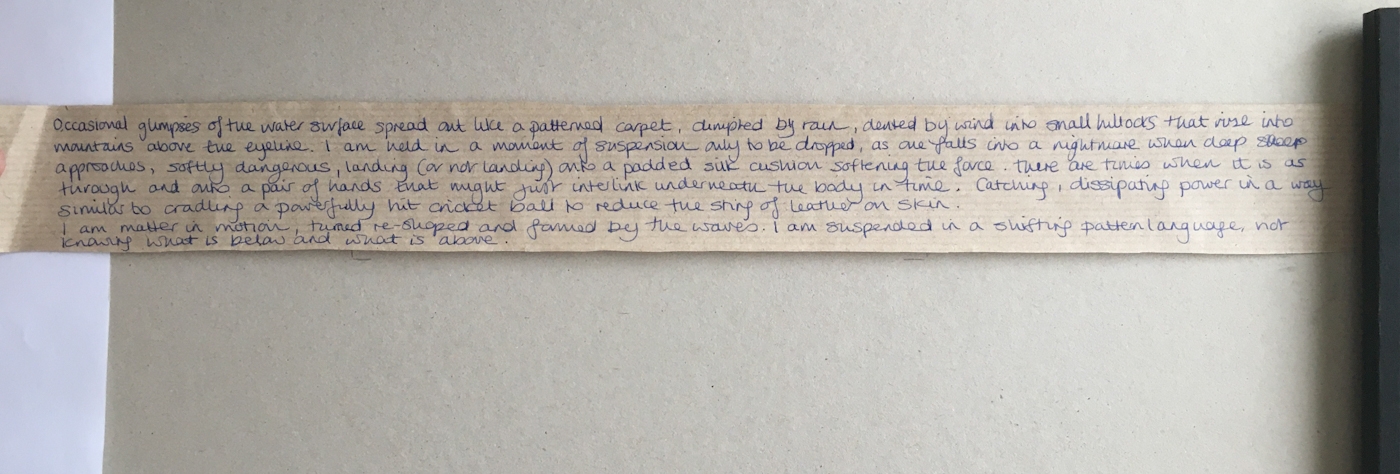 Occasional glimpses of the water surface spread out like a patterned carpet, dimpled by rain, dented by wind into small hillocks that rise into
mountains above the eyeline. I am held in a moment of suspension only to be dropped, as one falls into a nightmare when deep sleep
approaches, softly dangerous, landing (or not landing) onto a padded silk cushion softening the force. There are times when it is as
through and onto a pair of hands that might just interlink underneath the body in time. Catching, dissipating power in a way
similar to cradling a powerfully hit cricket ball to reduce the sting of leather on skin.
I am matter in motion, turned re-shaped and formed by the waves. I am suspended in a shifting pattern language, not
knowing what is below and what is above.